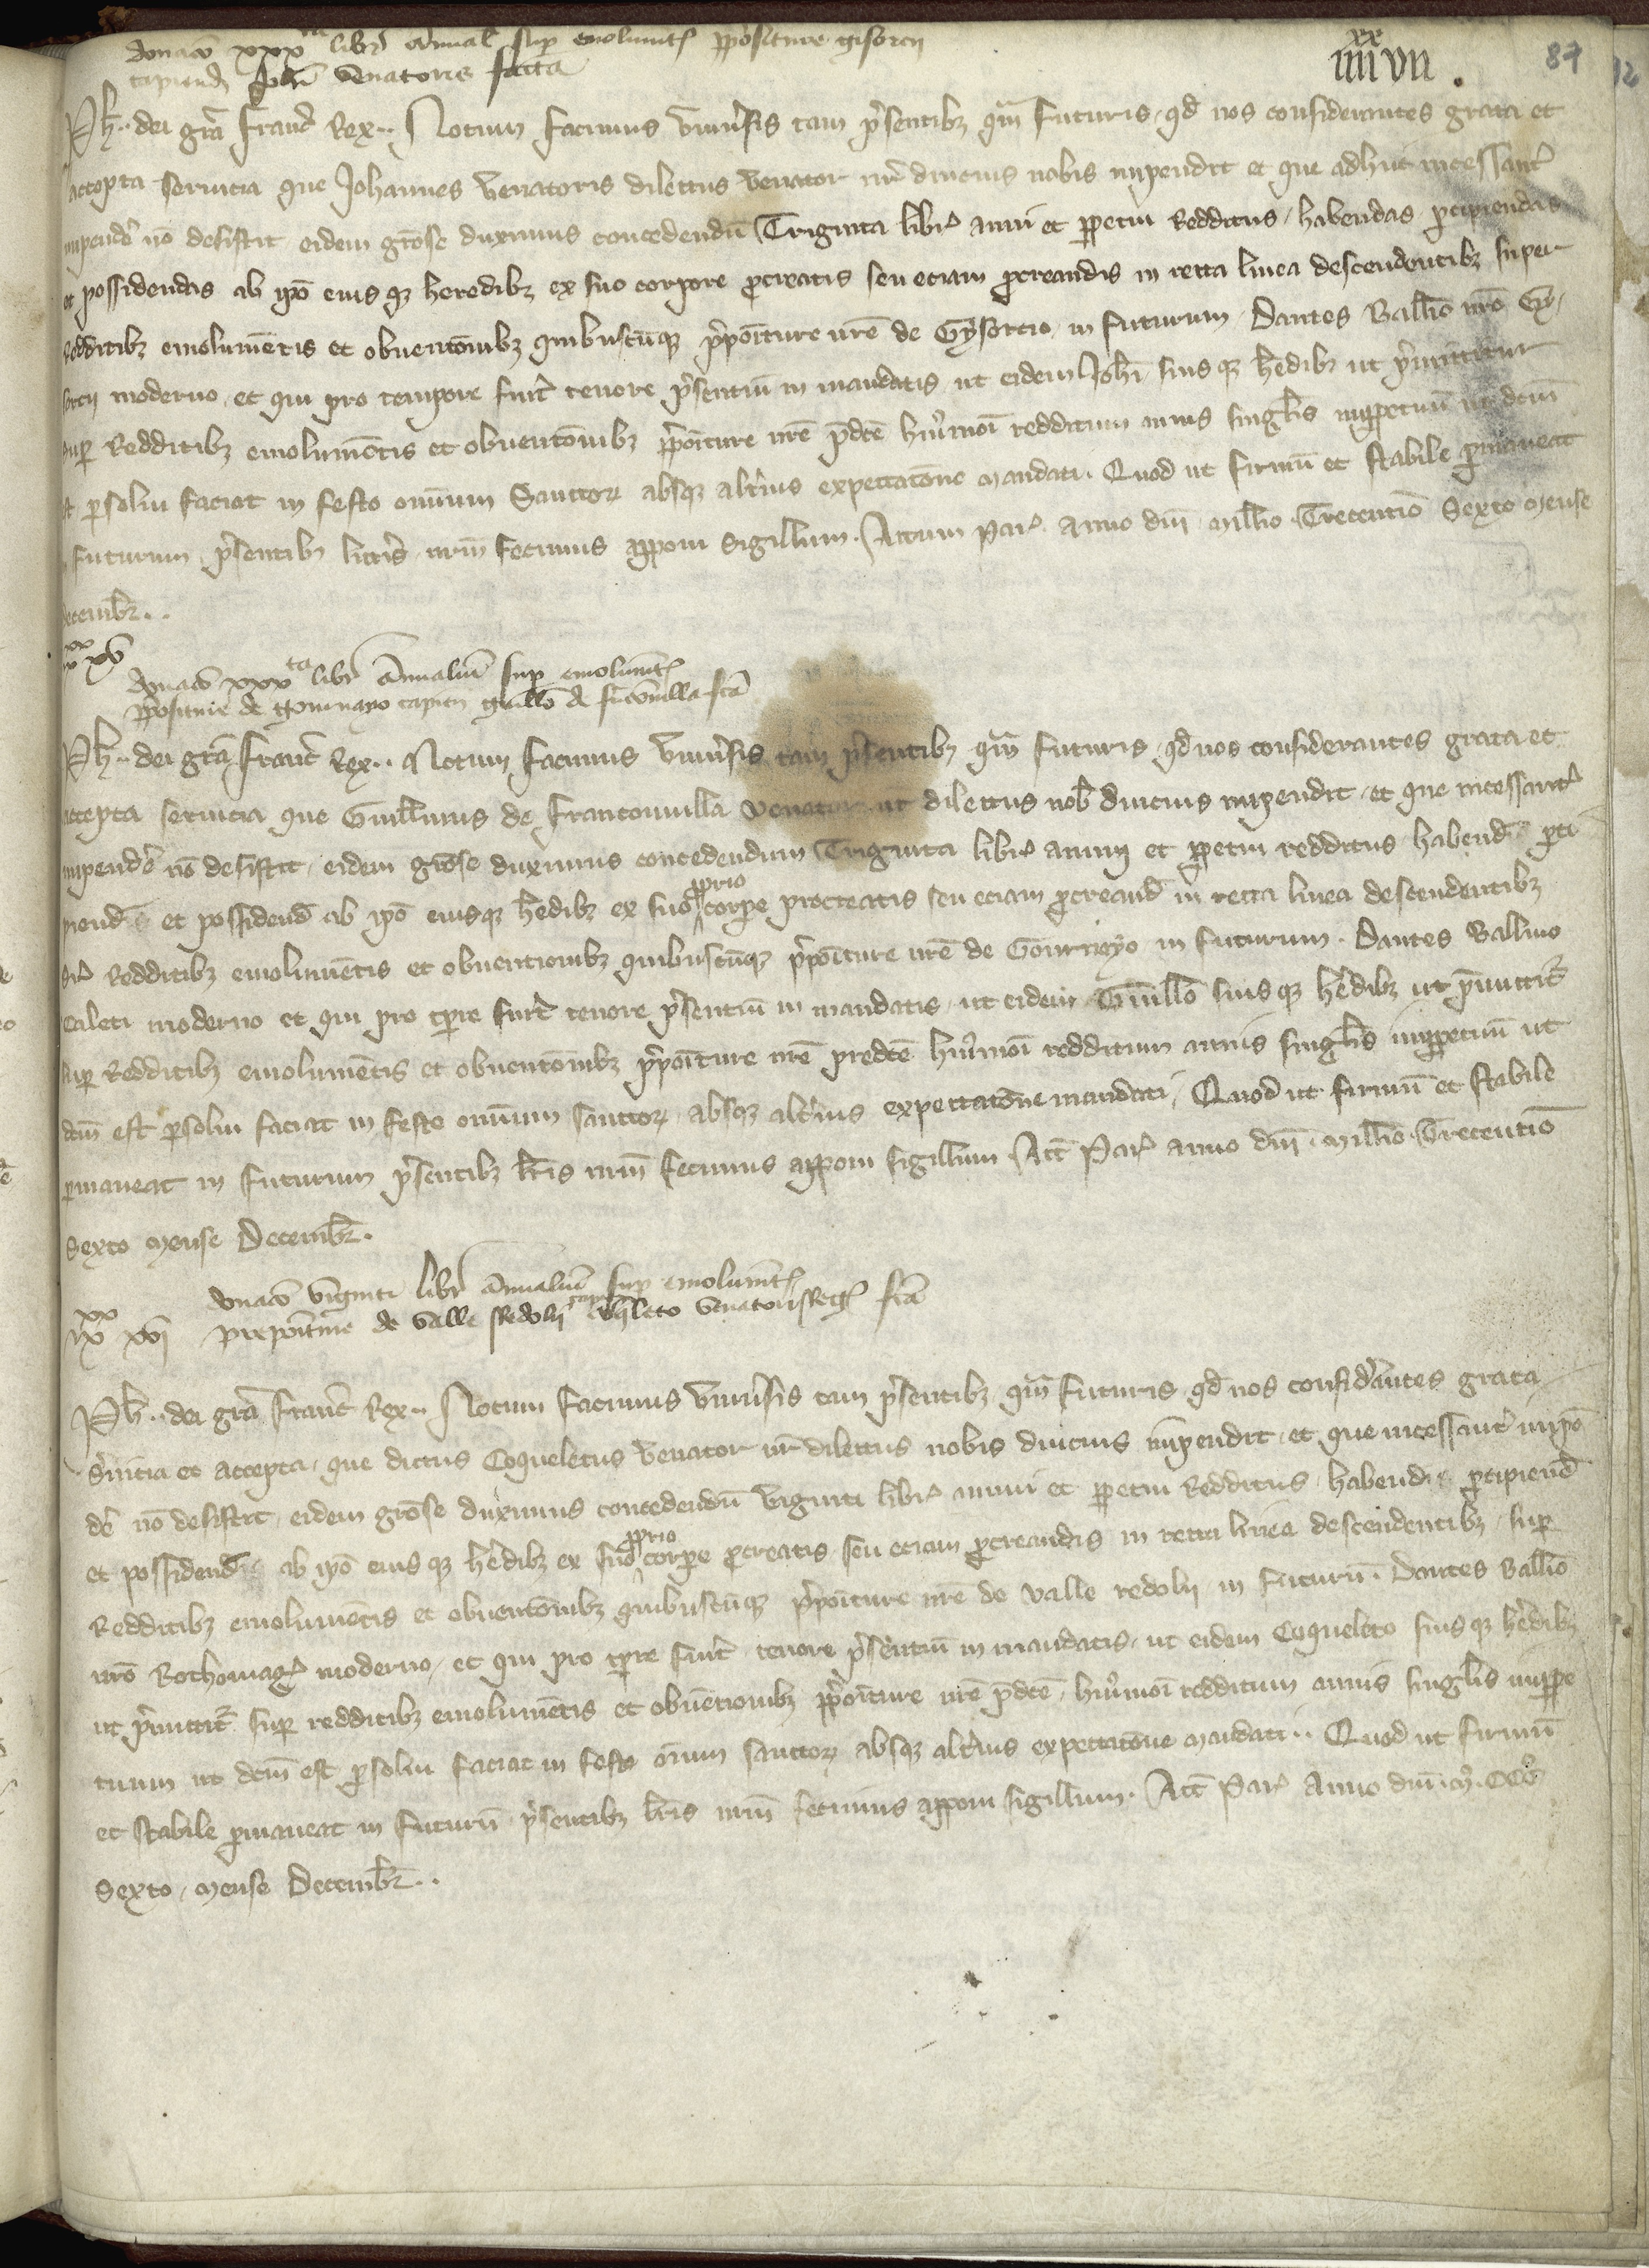 donacio xxxta libr annual sup emolumtis ppositure gisorcii
capiend Johi Venatoris facta
iiiixx vii . 87
Ph·· dei gra Franc Rex·· Notum facimus Universis tam psentibz qm futuris, qd nos considerantes grata et
accepta servicia que Johannes Venatoris dilectus Venator nr diucius nobis impendit et que adhuc incessant
impende no desistit eidem grose duximus concedendu Triginta libr annui et ppetui Redditus, habendas pcipiendas
et possidendas ab ipo eius qz heredibz ex suo corpore pcreatis seu eciam pcreandis in recta linea descendentibz super
Redditibz emolumetis et obuentoibz quibuscuqz ppoiture nre de Gysorcio in futurum. Dantes Balliuo nro Gy
sorcii moderno, et qui pro tempore fuit tenore psentiu in mandatis ut eidem Johi suis qz hedibz ut pmittitur
sup Redditibz emolumetis et obuentoibz ppoiture nre pdce huiusmoi redditum annis singlis imppetuu ut dcm
est psolui faciat in festo omnium Sanctor absqz altius expectatone mandati. Quod ut firmu et stabile pmaneat
in futurum psentibz litteris nrm fecimus apponi Sigillum. Actum Par. Anno dni Millio Trecentio Sexto Mense
Decembr..
ixxx xv
donacio xxxta libr Annualiu sup emolumtis
ppositure de Gournayo capien Guillo de francovilla fca
Ph·· dei gra Franc Rex·· Notum facimus Universis tam psentibz qm futuris, qd nos considerantes grata et
accepta servicia que Guillmus de Franconuilla Venator nr dilectus nob diucius impendit, et que incessant
impende no desistit, eidem grose duximus concedendum Triginta libr annui et ppetui redditus habend pci
piend et possidend ab ipo eiusqz hedibz ex suo pprio corpe procreatis seu eciam pcreand in recta linea descendentibz
sup Redditibz emolumetis et obuentionibz quibuscuqz ppoiture nre de Gournayo in futurum. Dantes Balliuo
Caleti moderno et qui pro tpre fuit tenore psentiu in mandatis, ut eidem Guillo suis qz hedibz ut pmittit
sup Redditibz emolumetis et obuentoibz ppoiture nre predce huiusmoi redditum annis singlis imppetuu ut
dcm est psolui faciat in festo omnium sanctor, absqz altius expectatone mandati, Quod ut firmu et stabile
pmaneat in futurum psentibz lris nrm fecimus apponi sigillum. Act Par. anno dni Millio Trecentio
Sexto Mense Decembr.
donacio viginti libr annualiu sup emolumtis
ixxx xvi prepoiture de Valle Redolii capiend Coqleto Venatori Reg fca
Ph·· dei gra Franc Rex·· Notum facimus Universis tam psentibz qm futuris qd nos considantes grata
suicia et accepta, que dictus Coqueletus Venator nr dilectus nobis diucius impendit, et que incessant impen
de no desistit, eidem grose duximus concedendu viginti libr annui et ppetui Redditus, habend pcipiend
et possidend ab ipo eius qz hedibz ex suo pprio corpe pcreatis seu eciam pcreandis in recta linea descendentibz, sup
Redditibz emolumetis et obuentoibz quibuscuqz ppoiture nre de Valle redolii in futuru. Dantes Ballio
nro Rothomag moderno, et qui pro tpre fuit, tenore psentiu in mandatis, ut eidem Coqueleto suis qz hedibz
ut pmittit sup redditibz emolumetis et obuetionibz ppoiture nre pdce, huiusmoi redditum annis singlis imppe
tuum ut dcm est psolui faciat in festo oium sanctor absqz altius expectatone Mandati.. Quod ut firmu
et stabile pmaneat in futuru psentibz lris nrm fecimus apponi sigillum. Act Par. Anno dni. Mo. CCCo
Sexto, Mense Decembr..